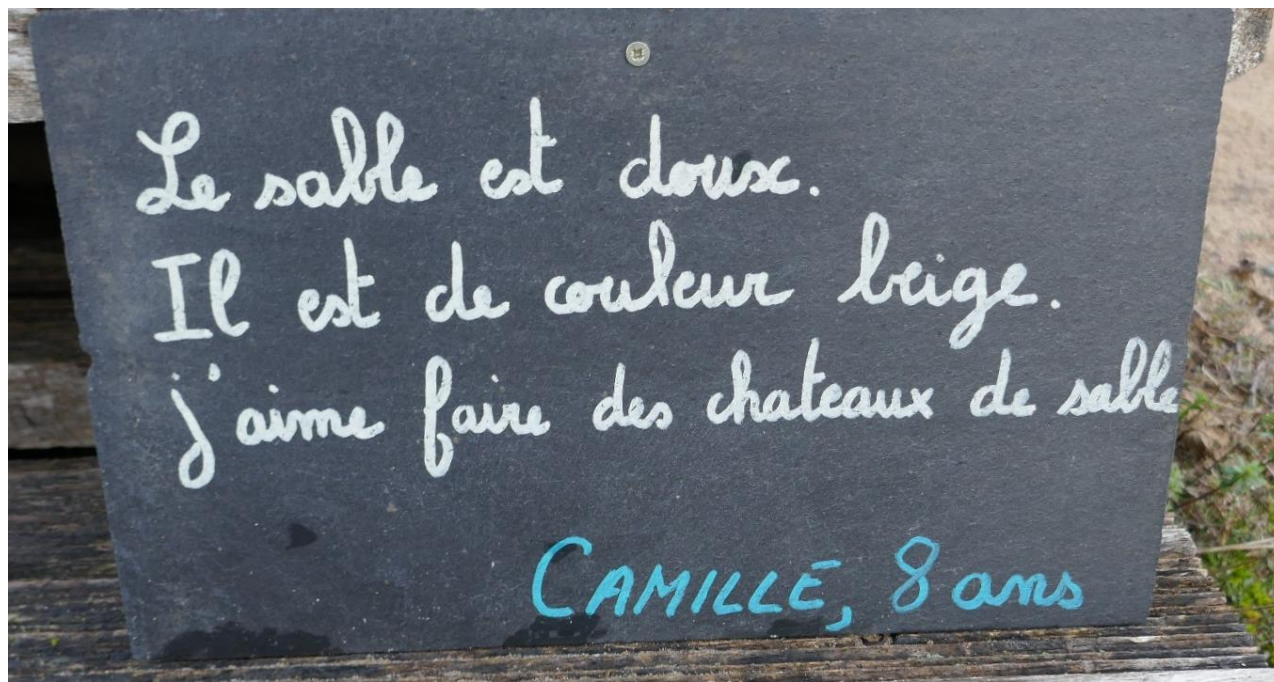 Le sable est doux.
Il est de couleur beige.
j'aime faire des chateaux de sable
CAMILLE, 8 ans